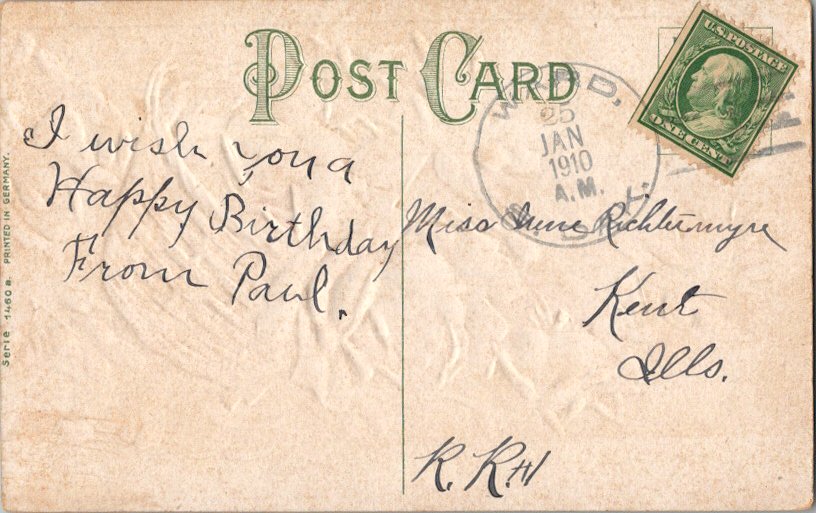 POST CARD
U.S. POSTAGE
ONE CENT
WARD,
25
JAN
1910
A.M.
I wish you a
Happy Birthday
From Paul.
Miss June Richtemyre
Kent
Ills.
R. R #1
Serie 1460 a. PRINTED IN GERMANY.